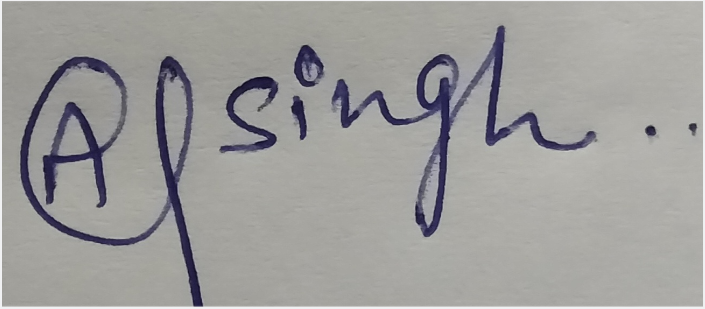 A singh...